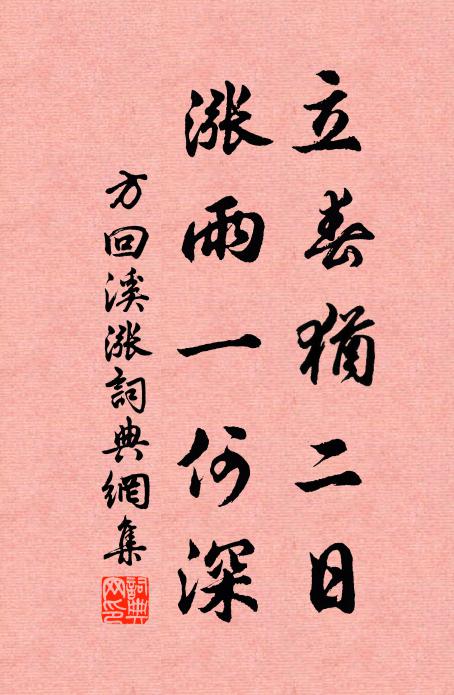 立春猶二日
漲雨一何深
方回溪漲詞典網集
詞典
网印